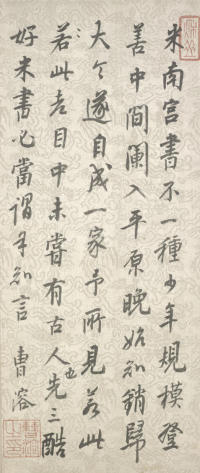 米南宫書不一種少年規模登
善中間闌入平原晚始知銷歸
大令遂自成一家予所見若此
若此老目中未嘗有古人也先三酷
好米書必當謂予知言 曹溶